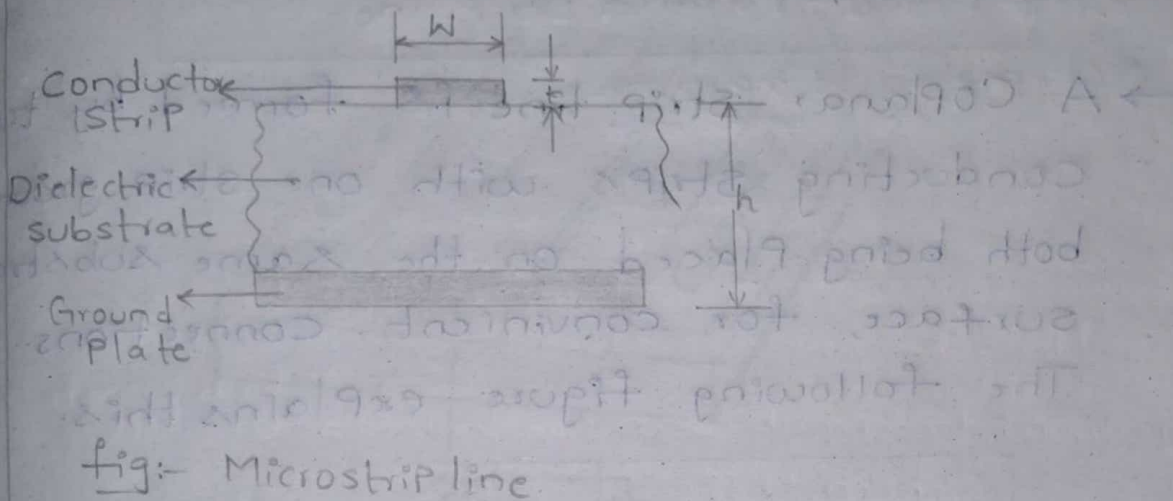 W
Conductor
Strip
t
Dielectric
substrate
h
Ground
plate
fig:- Microstrip line